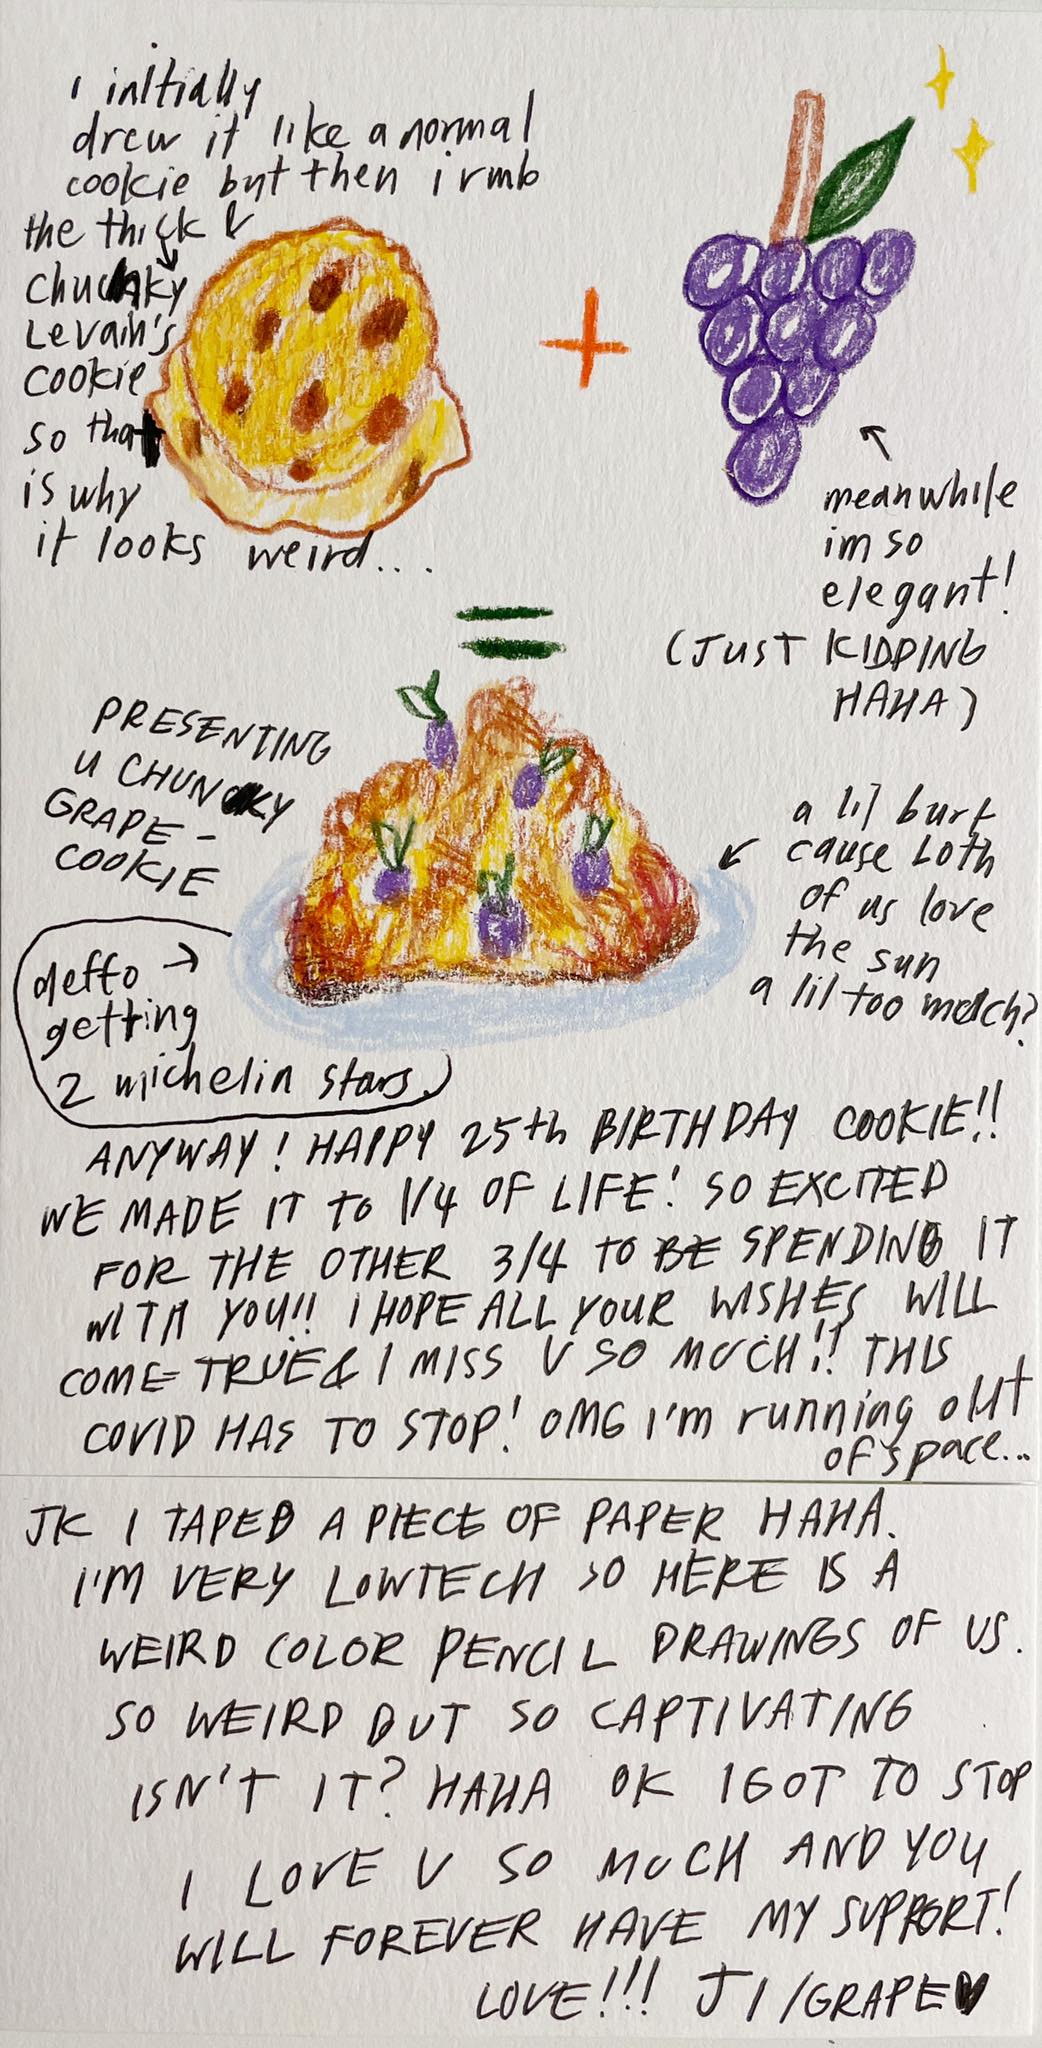 i initially
drew it like a normal
cookie but then i rmb
the thick &
chunky
Levain's
cookie
so that
is why
it looks weird...
meanwhile
im so
elegant!
(JUST KIDDING
HAHA)
PRESENTING
U CHUNKY
GRAPE-
COOKIE
a lil burt
cause both
of us love
the sun
a lil too much?
deffo →
getting
2 michelin stars.
ANYWAY! HAPPY 25th BIRTHDAY COOKIE!!
WE MADE IT TO 1/4 OF LIFE! SO EXCITED
FOR THE OTHER 3/4 TO BE SPENDING IT
WITH YOU!! I HOPE ALL YOUR WISHES WILL
COME TRUE & I MISS U SO MUCH!! THIS
COVID HAS TO STOP! OMG I'm running out
of space...
JK I TAPED A PIECE OF PAPER HAHA.
I'M VERY LOWTECH SO HERE IS A
WEIRD COLOR PENCIL DRAWINGS OF US.
SO WEIRD BUT SO CAPTIVATING
ISN'T IT? HAHA OK I GOT TO STOP
I LOVE U SO MUCH AND YOU
WILL FOREVER HAVE MY SUPPORT!
LOVE!!! JI/GRAPE♥